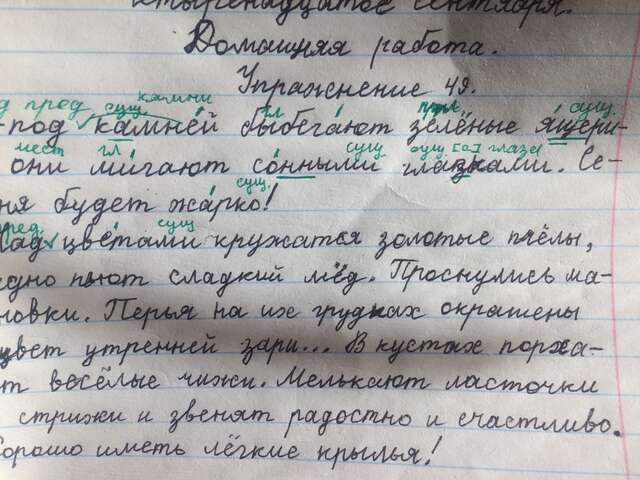 етырнадцатое сентября.
Домашняя работа.
Упражнение 49.
пред сущ. камни гл прил сущ.
-под камне́й выбега́ют зелёные я́щери-
мест гл сущ сущ [а] глаза
они ми́гают со́нными глазками. Се-
сущ.
ня будет жа́рко!
пред сущ
Над цвета́ми кружатся золотые пчёлы,
едно пьют сладкий мёд. Проснулись ма-
новки. Перья на их грудках окрашены
цвет утренней зари... В кустах порха-
т весёлые чижи. Мелькают ласточки
стрижи и звенят радостно и счастливо.
Хорошо иметь лёгкие крылья!